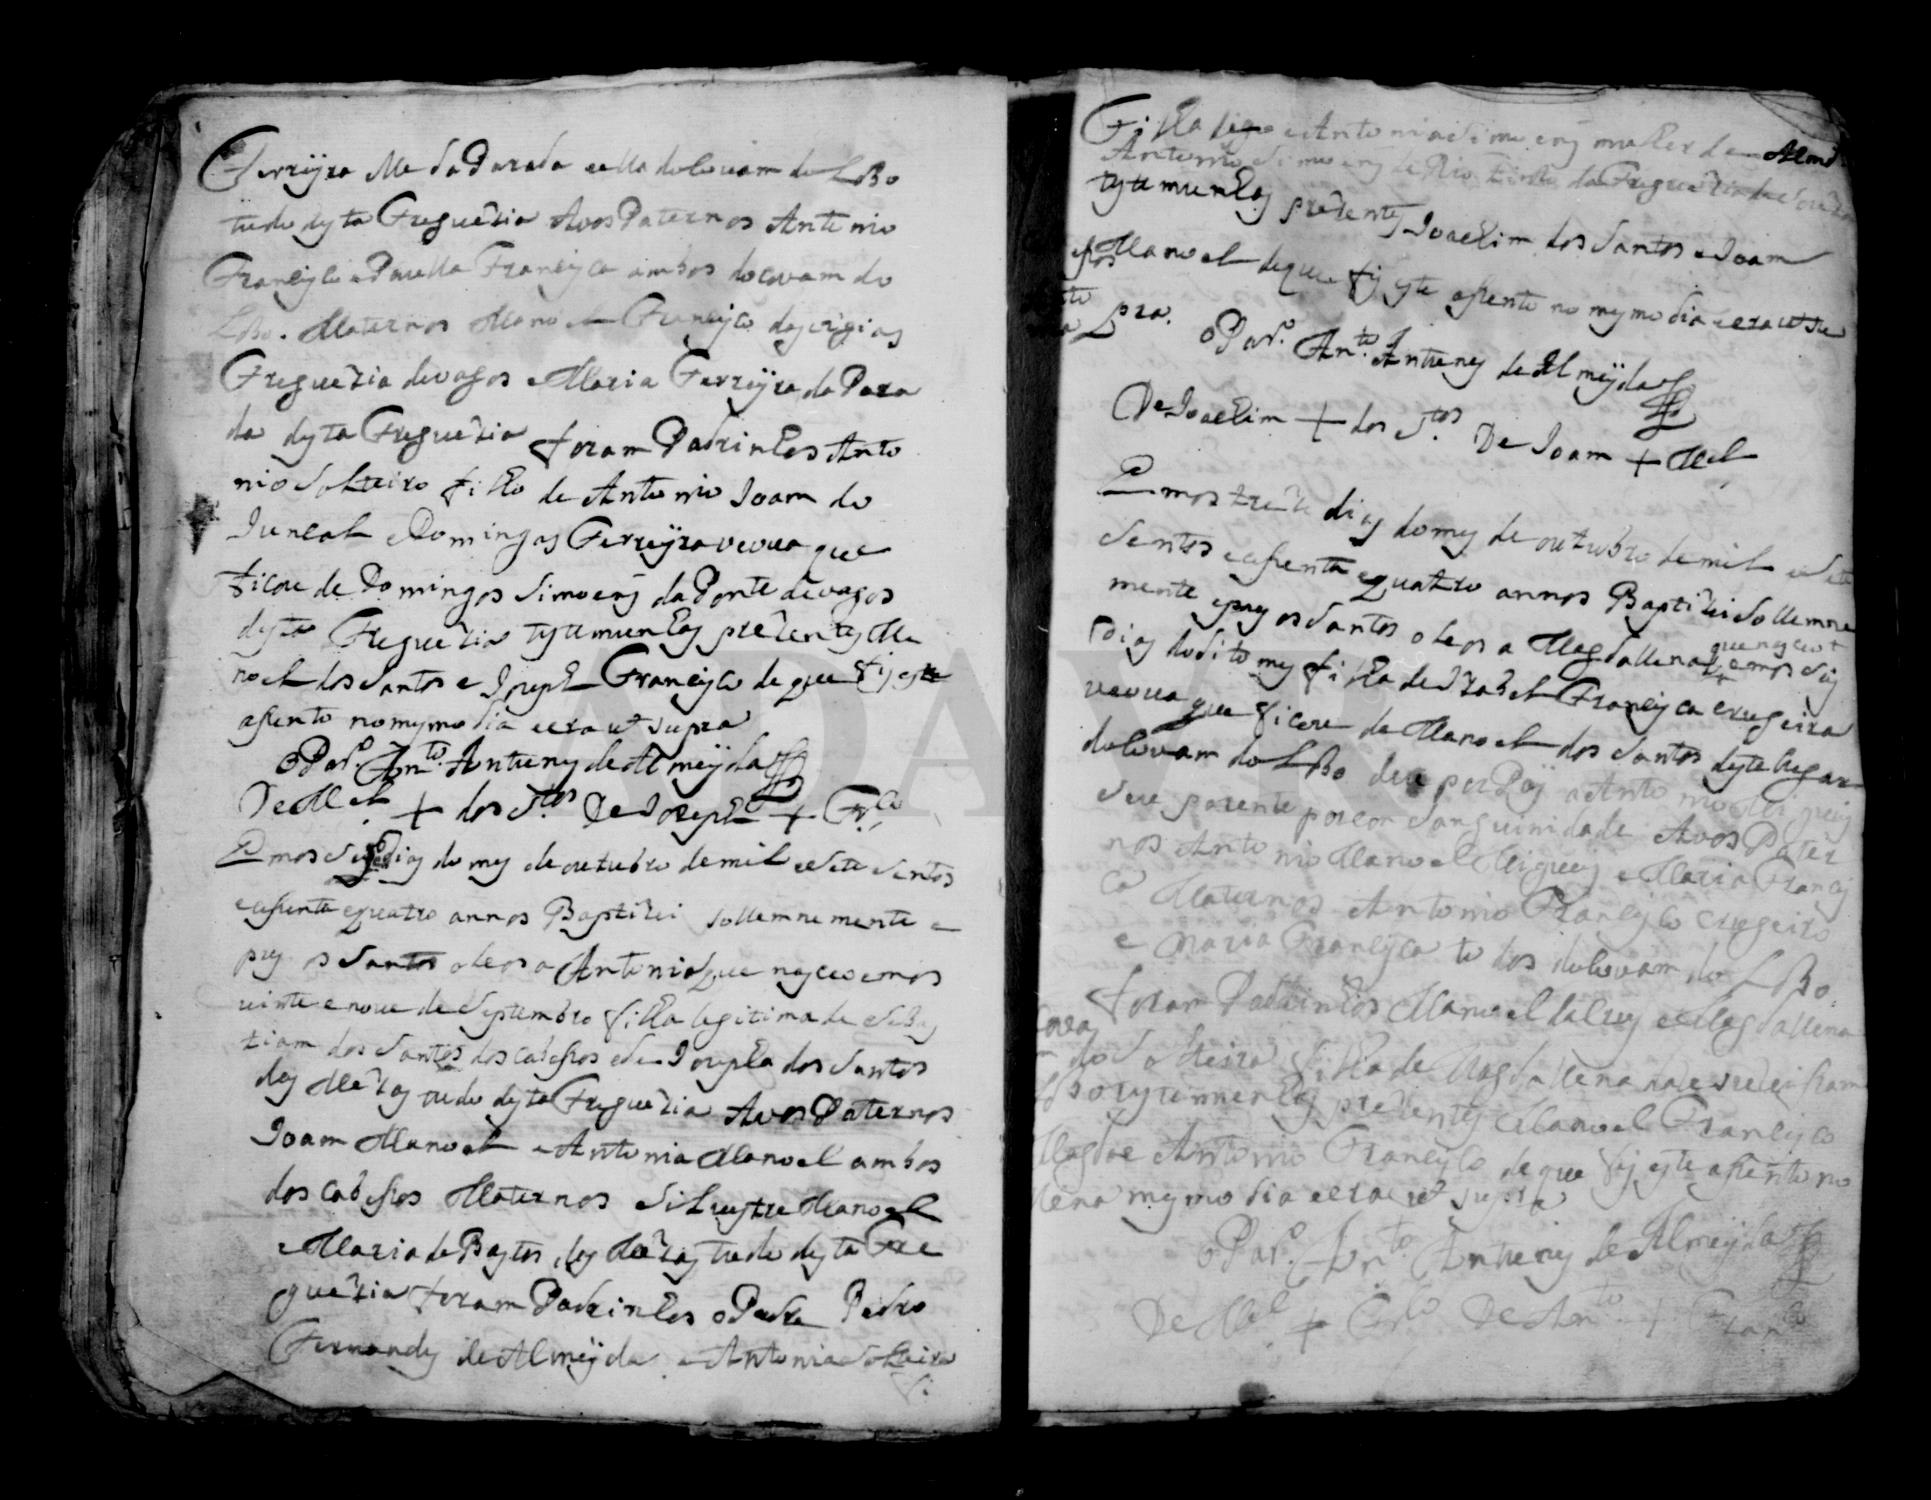 Ferreÿra elle da Parada e ella do Covam do Lobo
tudo desta Freguezia Avos Paternos Antonio
Francisco e Paulla Francisca ambos do Covam do
Lobo. Maternos Manoel Francisco das
Freguezia de Vagos e Maria Ferreÿra da Para
da desta Freguezia foram Padrinhos Anto
nio Solteiro filho de Antonio Joam do
Juncal e Domingas Ferreÿra veuva que
ficou de Domingos Simoens da Ponte de Vagos
desta Freguezia testemunhas prezentes Ma
noel dos Santos e Joseph Francisco de que fis este
asento no mesmo dia e era ut supra
o Par.º Ant.º Antunes de Almeÿda
De M.el + dos S.tos De Joseph + Fr.co
Emos dias do mes de outubro de mil e sete sentos
e sesenta e quatro annos Baptizei sollemnemente e
pus os Santos oleos a Antonia que nasceo emos
vinte e nove de Septembro filha legitima de Sebas
tiam dos Santos dos Cabesos e de Josepha dos Santos
das Mezas tudo desta Freguezia Avos Paternos
Joam Manoel e Antonia Manoel ambos
dos Cabesos Maternos Silvestre Manoel
e Maria de Bastos das Mezas tudo desta Fre
guezia foram Padrinhos o Padre Pedro
Fernandes de Almeÿda e Antonia Solteira
fi
Filha digo Antonia Simoens mulher de
Antonio Simoens de Rio Tinto da Freguezia de
testemunhas prezentes Joachim dos Santos e Joam
Manoel de que fis este asento no mesmo dia e era ut su
pra.
o Par.º Ant.º Antunes de Almeÿda
De Joachim + dos S.tos De Joam + M.el
Emos trinta dias do mes de outubro de mil e sete
sentos e sesenta e quatro annos Baptizei sollemne
mente e pus os Santos oleos a Magdallena que nasceo
emos
dias do dito mes filha de Izabel Francisca crugeira
veuva que ficou de Manoel dos Santos deste lugar
do Covam do Lobo deu por Paÿ a Antonio Migueis
seu parente por consanguinidade Avos Pater
nos Antonio Manoel Migueis e Maria Francis
ca Maternos Antonio Francisco crugeiro
e Maria Francisca todos do Covam do Lobo.
foram Padrinhos Manoel da Crus e Magdallena
Solteira filha de Magdallena
testemunhas prezentes Manoel Francisco
e Antonio Francisco de que fis este asento no
mesmo dia e era ut supra
o Par.º Ant.º Antunes de Almeÿda
De M.el + Fr.co De Ant.º + Fran.co
ADAVR